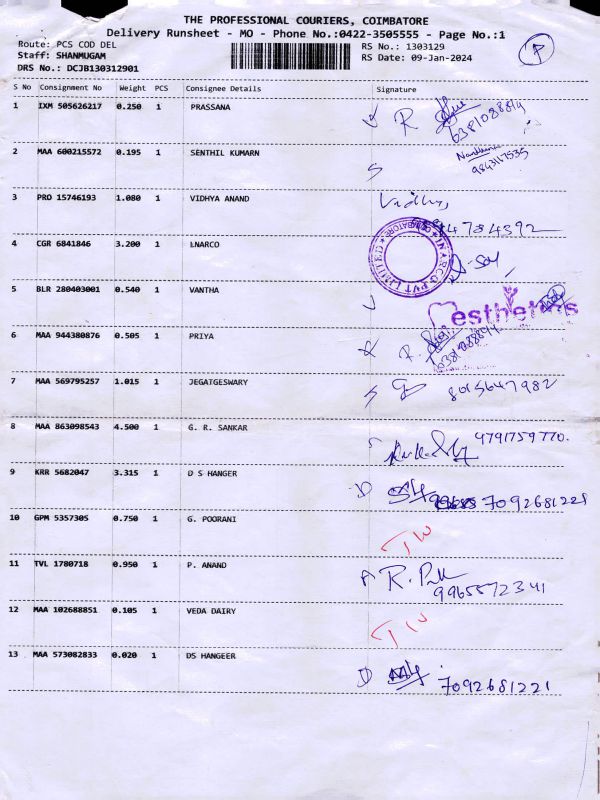 THE PROFESSIONAL COURIERS, COIMBATORE
Delivery Runsheet - MO - Phone No.:0422-3505555 - Page No.:1
Route: PCS COD DEL RS No.: 1303129
Staff: SHANMUGAM RS Date: 09-Jan-2024
DRS No.: DCJB130312901
P
S No Consignment No Weight PCS Consignee Details Signature
1 IXM 505626217 0.250 1 PRASSANA R
6381088814
2 MAA 600215572 0.195 1 SENTHIL KUMARN
9843117535
3 PRO 15746193 1.080 1 VIDHYA ANAND Vidhya
4784392
4 CGR 6841846 3.200 1 LNARCO
LNARCO PVT LIMITED
5 BLR 280403001 0.540 1 VANTHA
esthetics
6 MAA 944380876 0.505 1 PRIYA R.
7 MAA 569795257 1.015 1 JEGATGESWARY 8015647982
8 MAA 863098543 4.500 1 G. R. SANKAR 4791759770.
9 KRR 5682047 3.315 1 D S HANGER 7092681221
10 GPM 5357305 0.750 1 G. POORANI
TW
11 TVL 1780718 0.950 1 P. ANAND A R. P
9965572341
12 MAA 102688851 0.105 1 VEDA DAIRY
TW
13 MAA 573082833 0.020 1 DS HANGEER D
7092681221